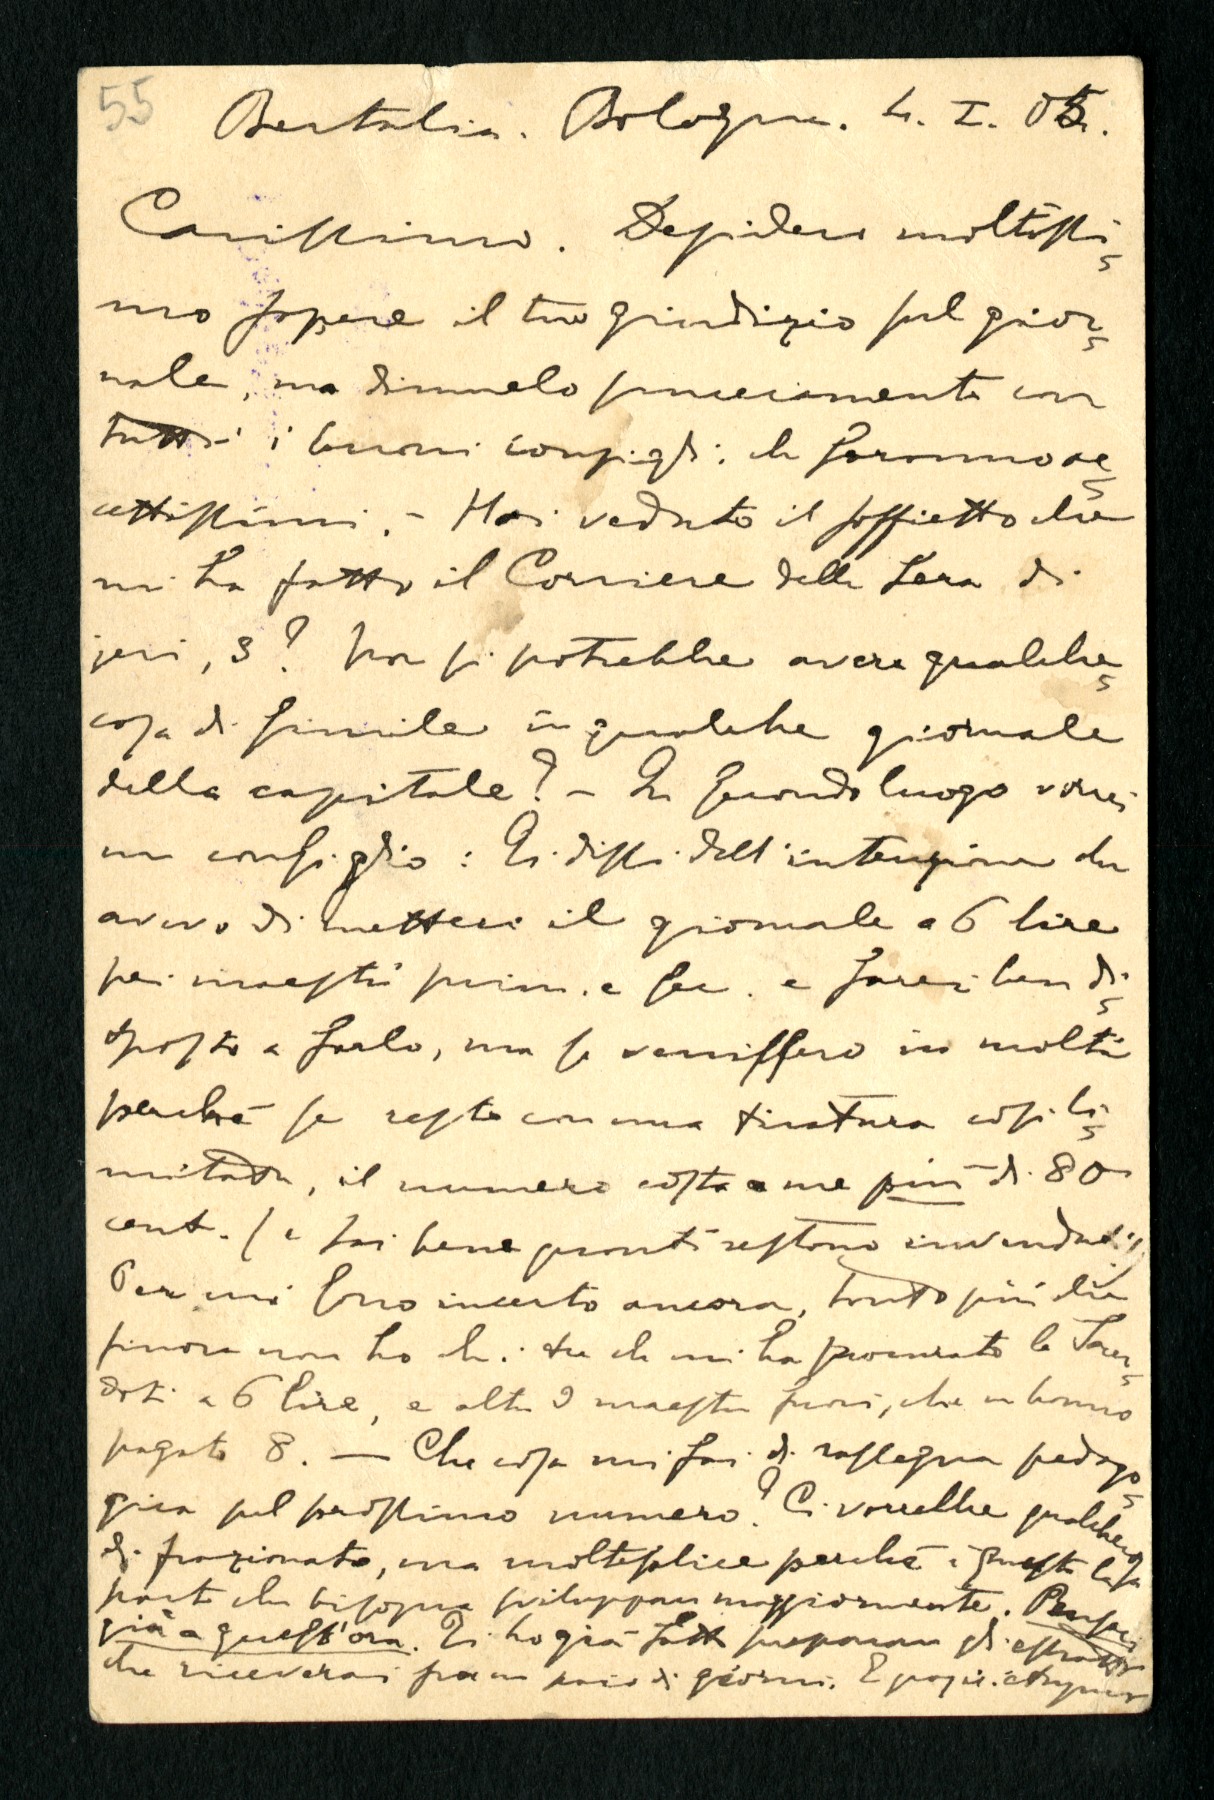 55
Bertalia. Bologna. 4. I. 05.
Carissimo. Desidero moltissi=
mo sapere il tuo giudizio sul gior=
nale, ma dimmelo sinceramente con
tutti i buoni consigli: che saranno ac=
cettissimi. – Hai veduto il soffietto che
mi ha fatto il Corriere della Sera di
jeri, 3? Non si potrebbe avere qualche=
cosa di simile in qualche giornale
della capitale? – In secondo luogo vorrei
un consiglio: Ti dissi dell'intenzione che
avevo di mettere il giornale a 6 lire
pei maestri prim. e sec. e sarei ben di=
sposto a farlo, ma se venissero in molti
perchè se resto con una tiratura così li=
mitata, il numero costa a me più di 80
cent. (e sai bene quanti restono invenduti)
Per cui sono incerto ancora, tanto più che
finora non ho che te che mi ha procurato la
a 6 lire, e altri 2 maestri che hanno
pagato 8. — Che cosa mi fai di rassegna pedago=
gica sul prossimo numero? Ci vorrebbe qualche cosa
di frazionato, ma molteplice perchè è questa la
parte che bisogna sviluppare maggiormente. Pensaci
già a quest'ora. Ti ho già fatto preparare gli estratti
che riceverai fra un paio di giorni. E